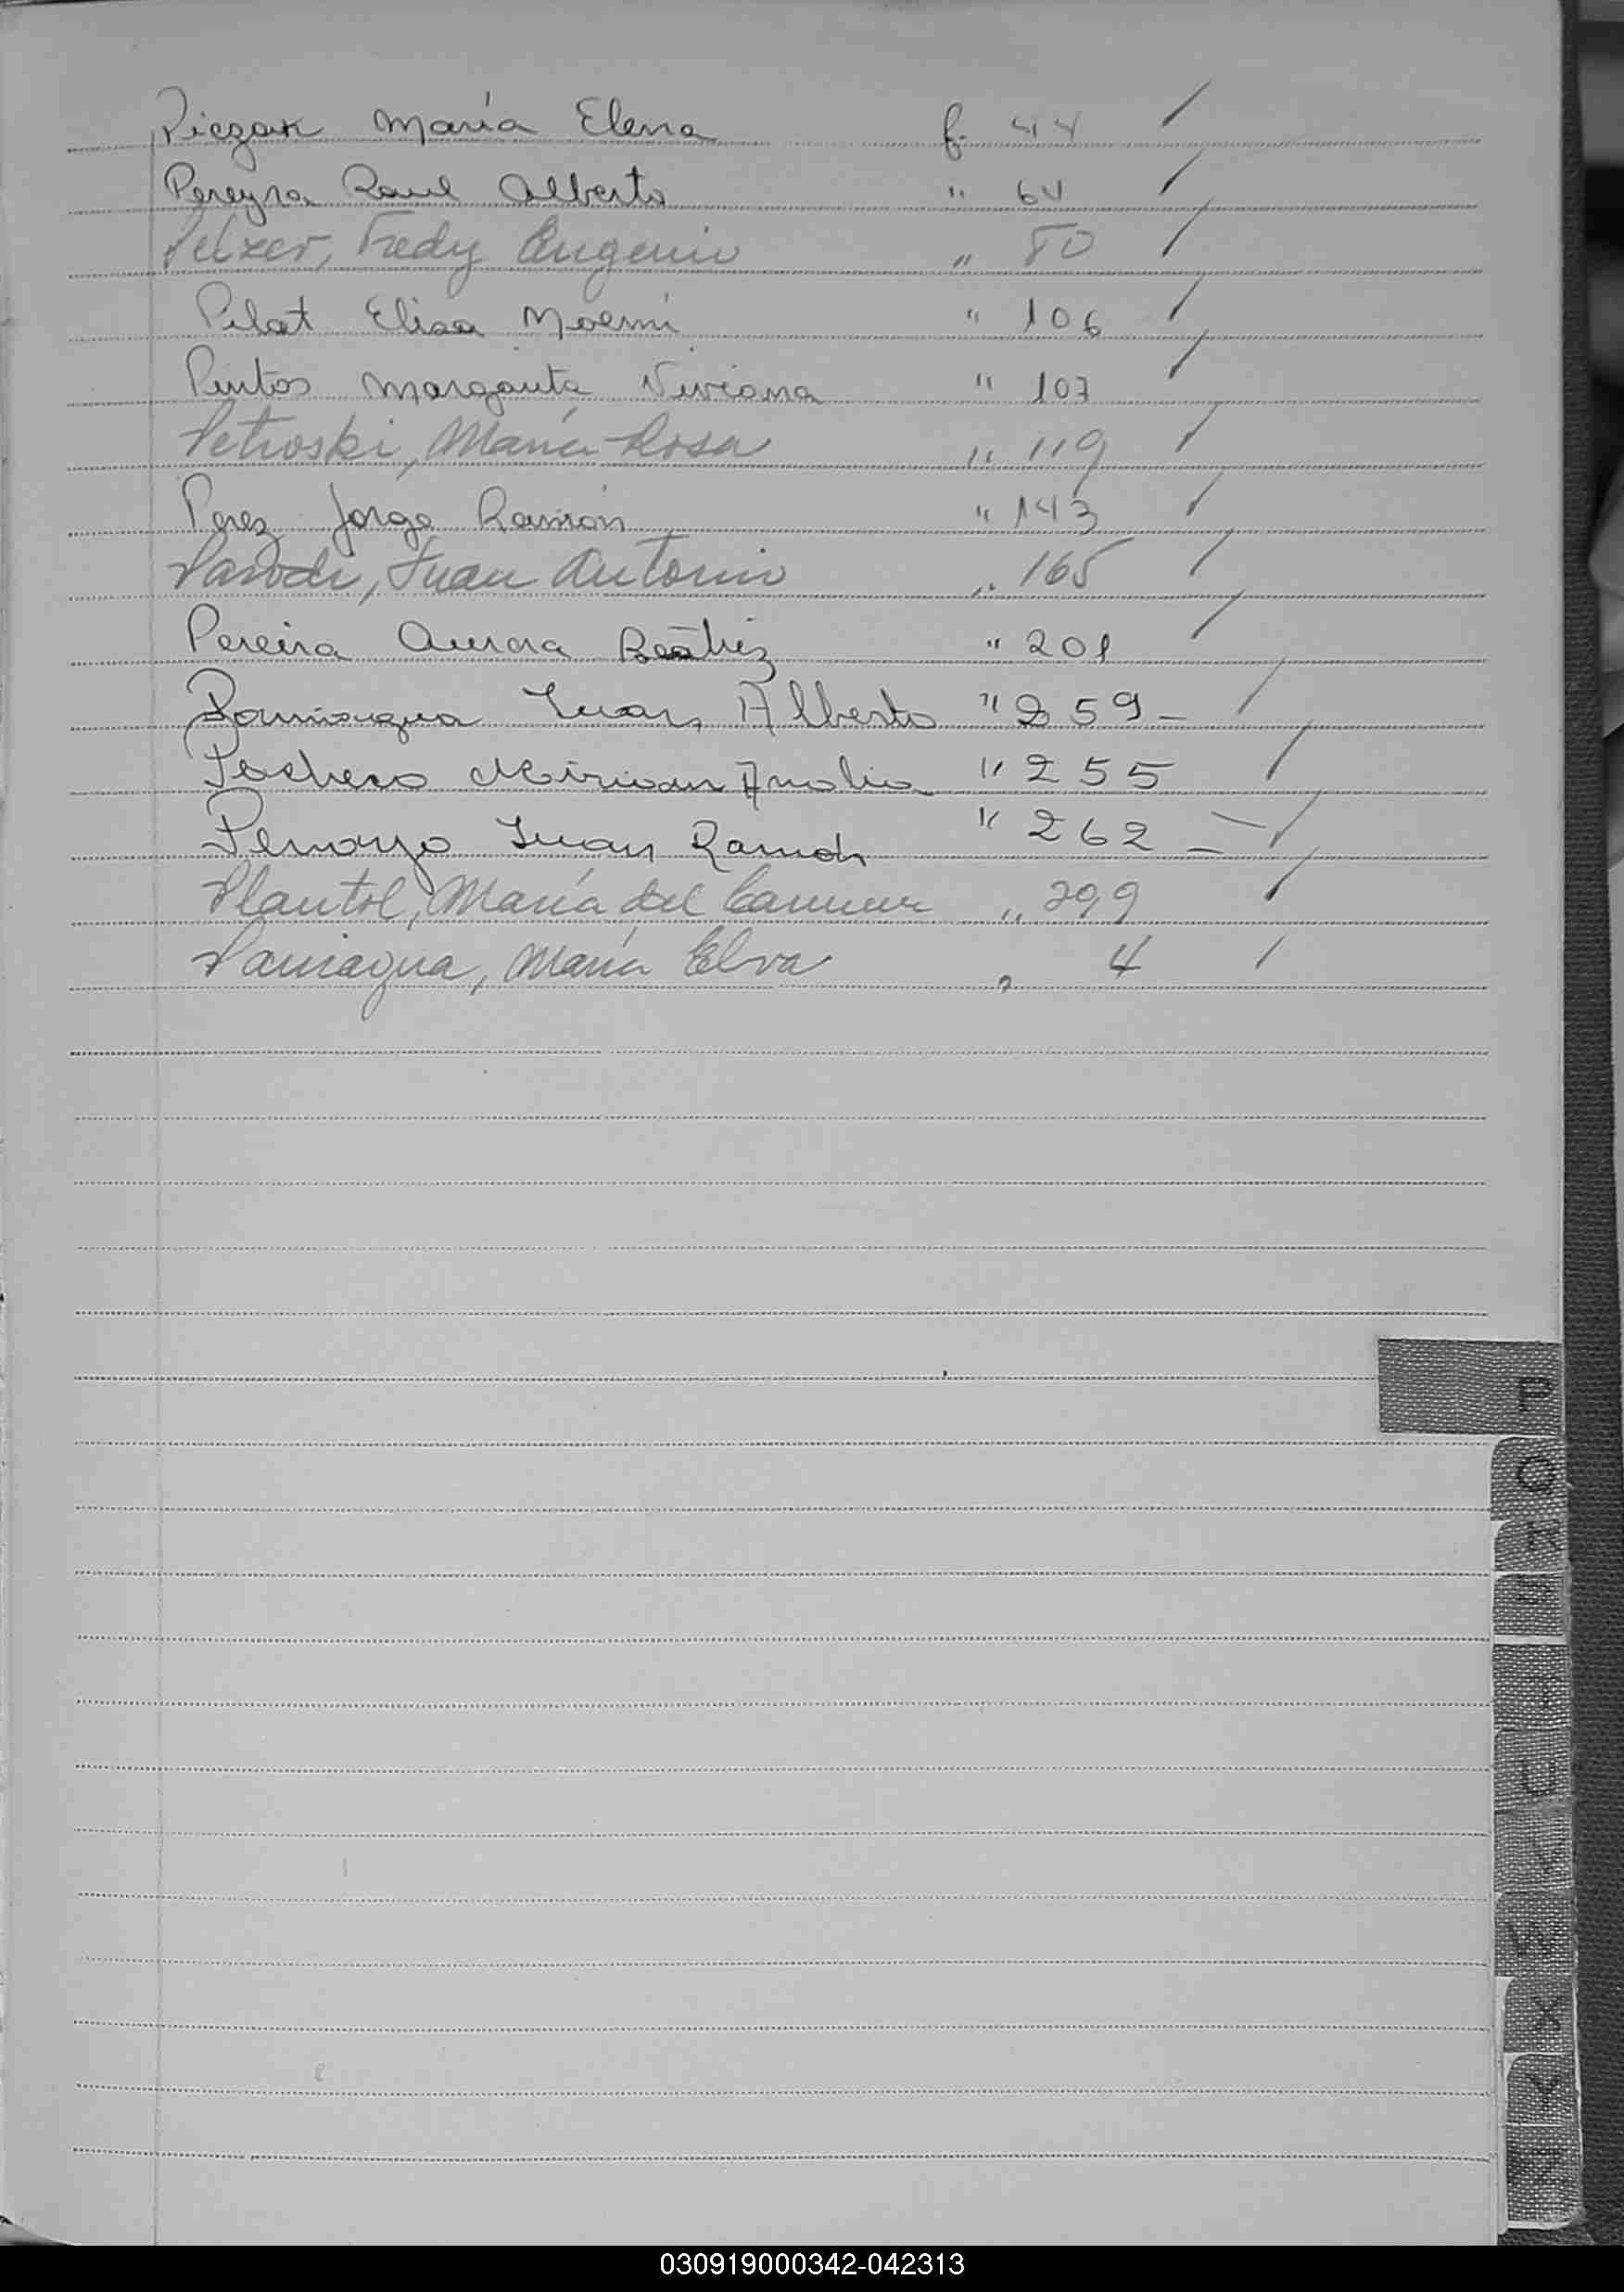 Piezak María Elena f. 44 /
Pereyra Raul Alberto " 64 /
Pelzer, Fredy Eugenio " 80 /
Pilat Elisa Noemí " 106 /
Pintos Margarita Viviana " 107 /
Petroski, María Rosa " 119 /
Perez Jorge Ramón " 143 /
Parodi, Juan Antonio " 165 /
Pereira Aurora Beatriz " 201 /
Paniagua Juan Alberto " 259 - /
Pacheco Mirian Analia " 255 /
Penayo Juan Ramón " 262 - /
Plantol, María del Carmen " 299 /
Paniagua, María Elva " 4 /
P
Q
R
U
V
W
X
Y
Z
030919000342-042313